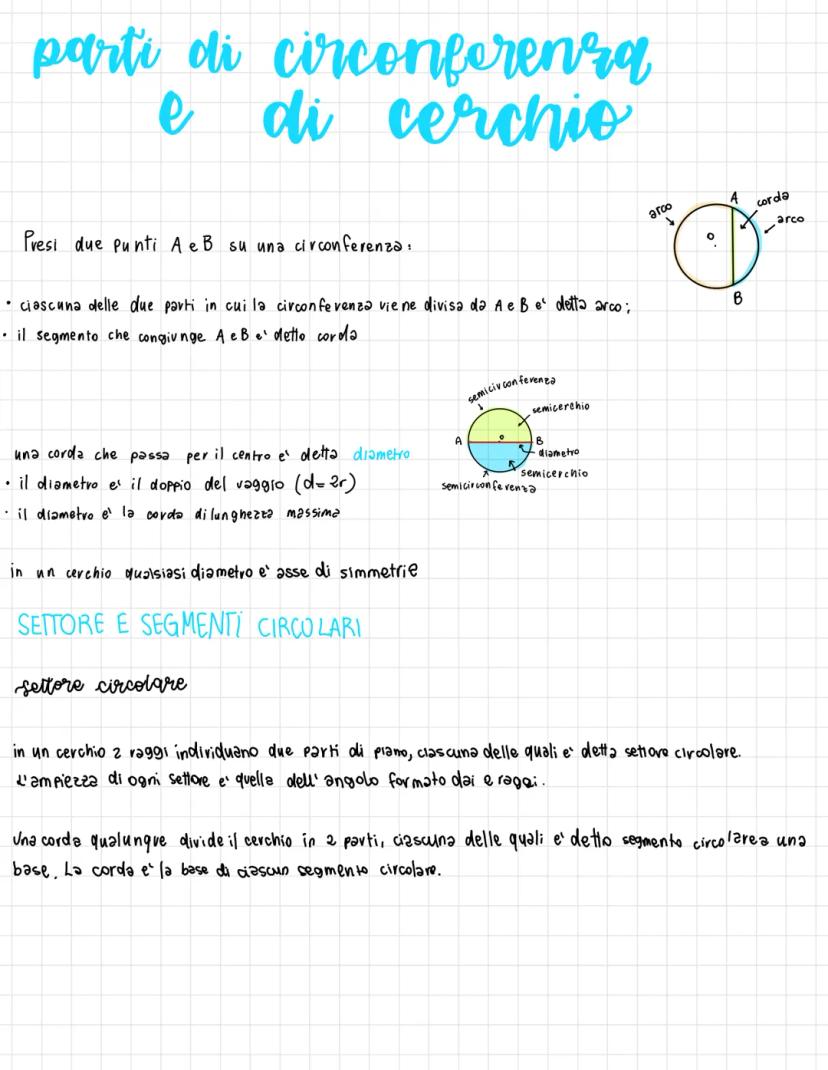 parti di circonferenza
e di cerchio
A
corda
arco
arco
O
B
Presi due punti A e B su una circonferenza:
• ciascuna delle due parti in cui la circonferenza viene divisa da A e B e' detta arco;
• il segmento che congiunge A e B e' detto corda
semicirconferenza
semicerchio
A
o
B
diametro
semicerchio
semicirconferenza
una corda che passa per il centro e' detta diametro
• il diametro e' il doppio del raggio (d=2r)
• il diametro e' la corda di lunghezza massima
in un cerchio qualsiasi diametro e' asse di simmetrie
SETTORE E SEGMENTI CIRCOLARI
settore circolare
in un cerchio 2 raggi individuano due parti di piano, ciascuna delle quali e' detta settore circolare.
L'ampiezza di ogni settore e' quella dell'angolo formato dai e raggi.
Una corda qualunque divide il cerchio in 2 parti, ciascuna delle quali e' detto segmento circolarea una
base. La corda e' la base di ciascun segmento circolare.